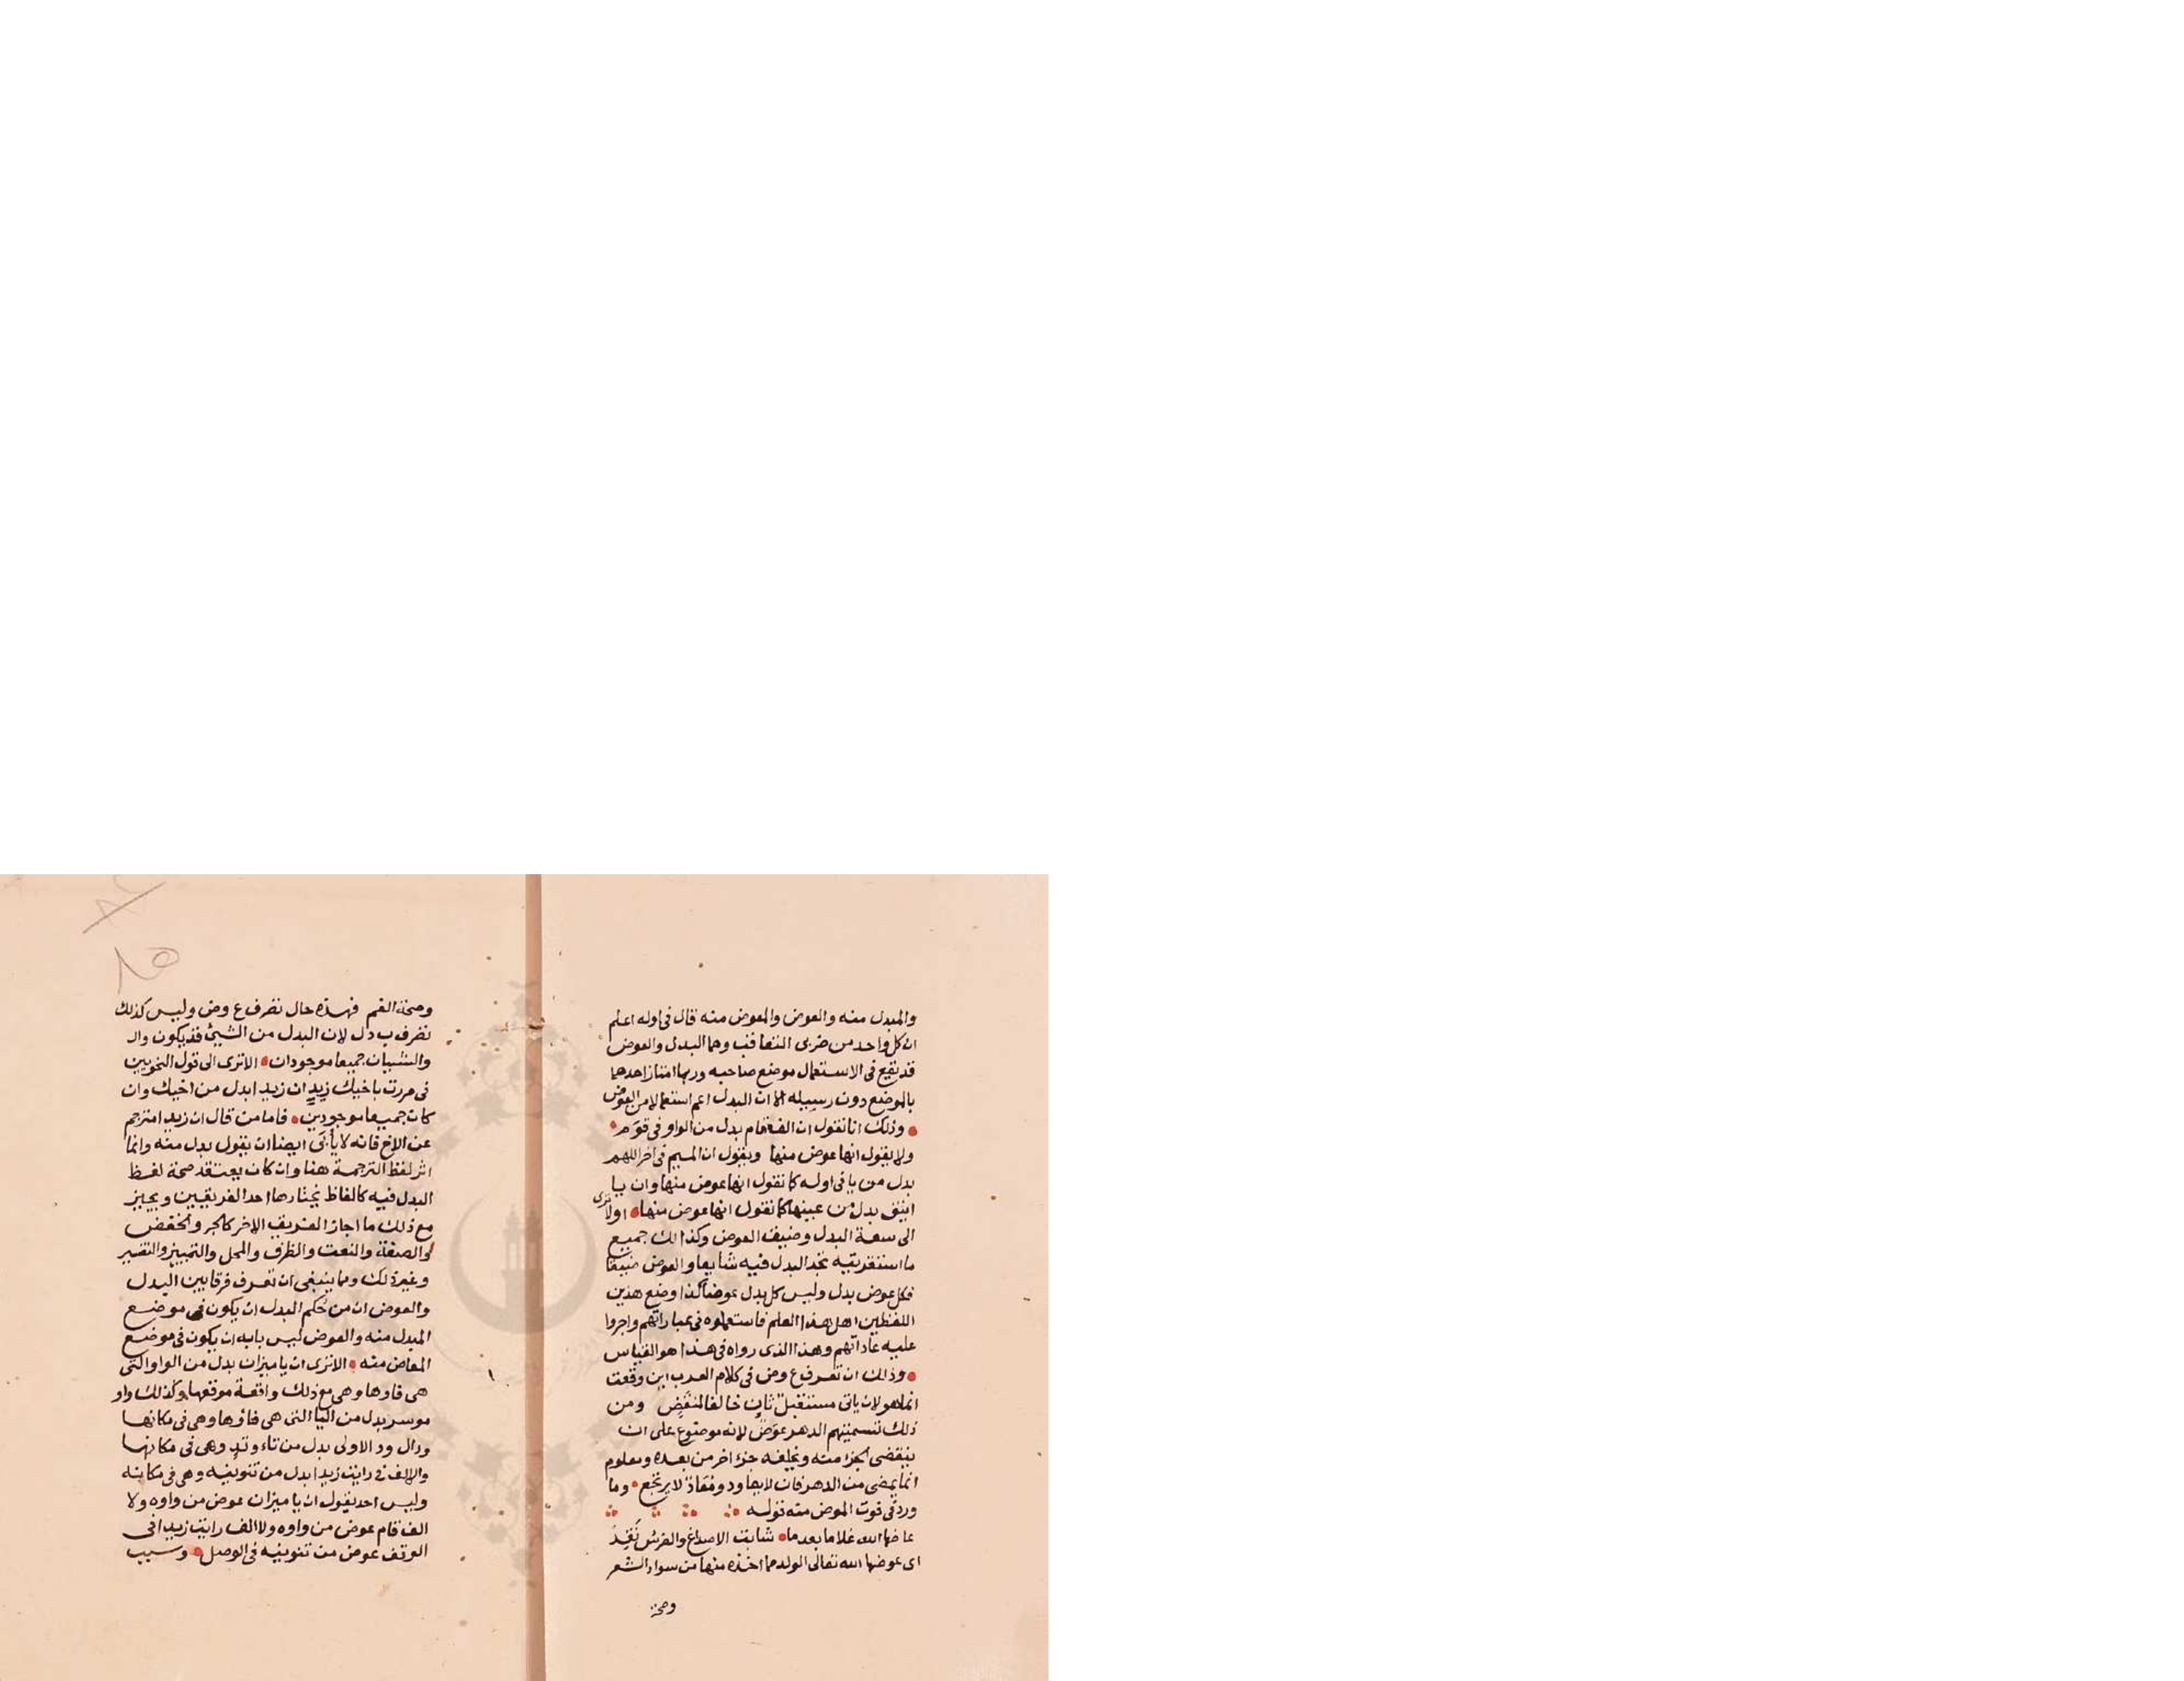 والمبدل منه والعوض والمعوض منه قال في اوله اعلم
ان كل واحد من ضربى التعاقب وهما البدل والعوض
قد يقع في الاستعمال موضع صاحبه وربما امتاز احدهما
بالموضع دون رسيله الا ان البدل اعم استعمالا من العوض
وذلك انا نقول ان الف قام بدل من الواو في قوم
ولا يقول انها عوض منها ويقول ان الميم في اخر اللهم
بدل من يا في اوله كما نقول انها عوض منها وان يا
اينق بدل من عينها كما نقول انها عوض منها اولا ترى
الى سعة البدل وضيق العوض وكذالك جميع
ما استقريته تجد البدل فيه شايعا والعوض ضيقا
فكل عوض بدل وليس كل بدل عوضا كذا وضع هذين
اللفظين اهل هذا العلم فاستعملوه في عباراتهم واجروا
عليه عاداتهم وهذا الذى رواه في هذا هو القياس
وذالك ان تصرف ع وض في كلام العرب اين وقعت
انما هو لان ياتى مستقبل ثان خالفا لمنقض ومن
ذلك تسميتهم الدهر عوض لانه موضوع على ان
ينقضى الجزا منه ويخلفه جزء اخر من بعده ومعلوم
انما يمضى من الدهر فان لا يعاود ومفاد لا يرتجع وما
ورد في فوت المعوض منه قوله
عاضها الله غلاما بعد ما شابت الاصداغ والضرس نقد
اى عوضها الله تعالى الولد مما اخذه منها من سواد الشعر
وصحة
وصحة الفم فهذه حال تصرف ع وض وليس كذلك
تصرف ب دل لان البدل من الشيئ قد يكون وال
والشيان جميعا موجودان الا ترى الى قول النحويين
في مررت باخيك زيد ان زيدا بدل من اخيك وان
كان جميعا موجودين فاما من قال ان زيدا مترجم
عن الاخ فانه لا يأبى ايضا ان يقول بدل منه وانما
اثر لفظ الترجمة هنا وان كان يعتقد صحة لفظ
البدل فيه كالفاظ يختارها احد الفريقين ويجيز
مع ذلك ما اجاز الفريق الاخر كالجر والخفض
والصفة والنعت والظرف والمحل والتمييز والتفسير
وغير ذلك ومما ينبغى ان تعرف فرقا بين البدل
والعوض ان من حكم البدل ان يكون في موضع
المبدل منه والعوض ليس بابه ان يكون في موضع
المعاض منه الا ترى ان يا ميزان بدل من الواو التى
هى فاوها وهى مع ذلك واقعة موقعها وكذلك واو
موسر بدل من اليا التى هى فاؤها وهى في مكانها
ودال ود الاولى بدل من تاء وتد وهى في مكانها
والالف في رايت زيدا بدل من تنوينه وهى في مكانه
وليس احد يقول ان يا ميزان عوض من واوه ولا
الف قام عوض من واوه ولا الف رايت زيدا في
الوقف عوض من تنوينه في الوصل وسبب